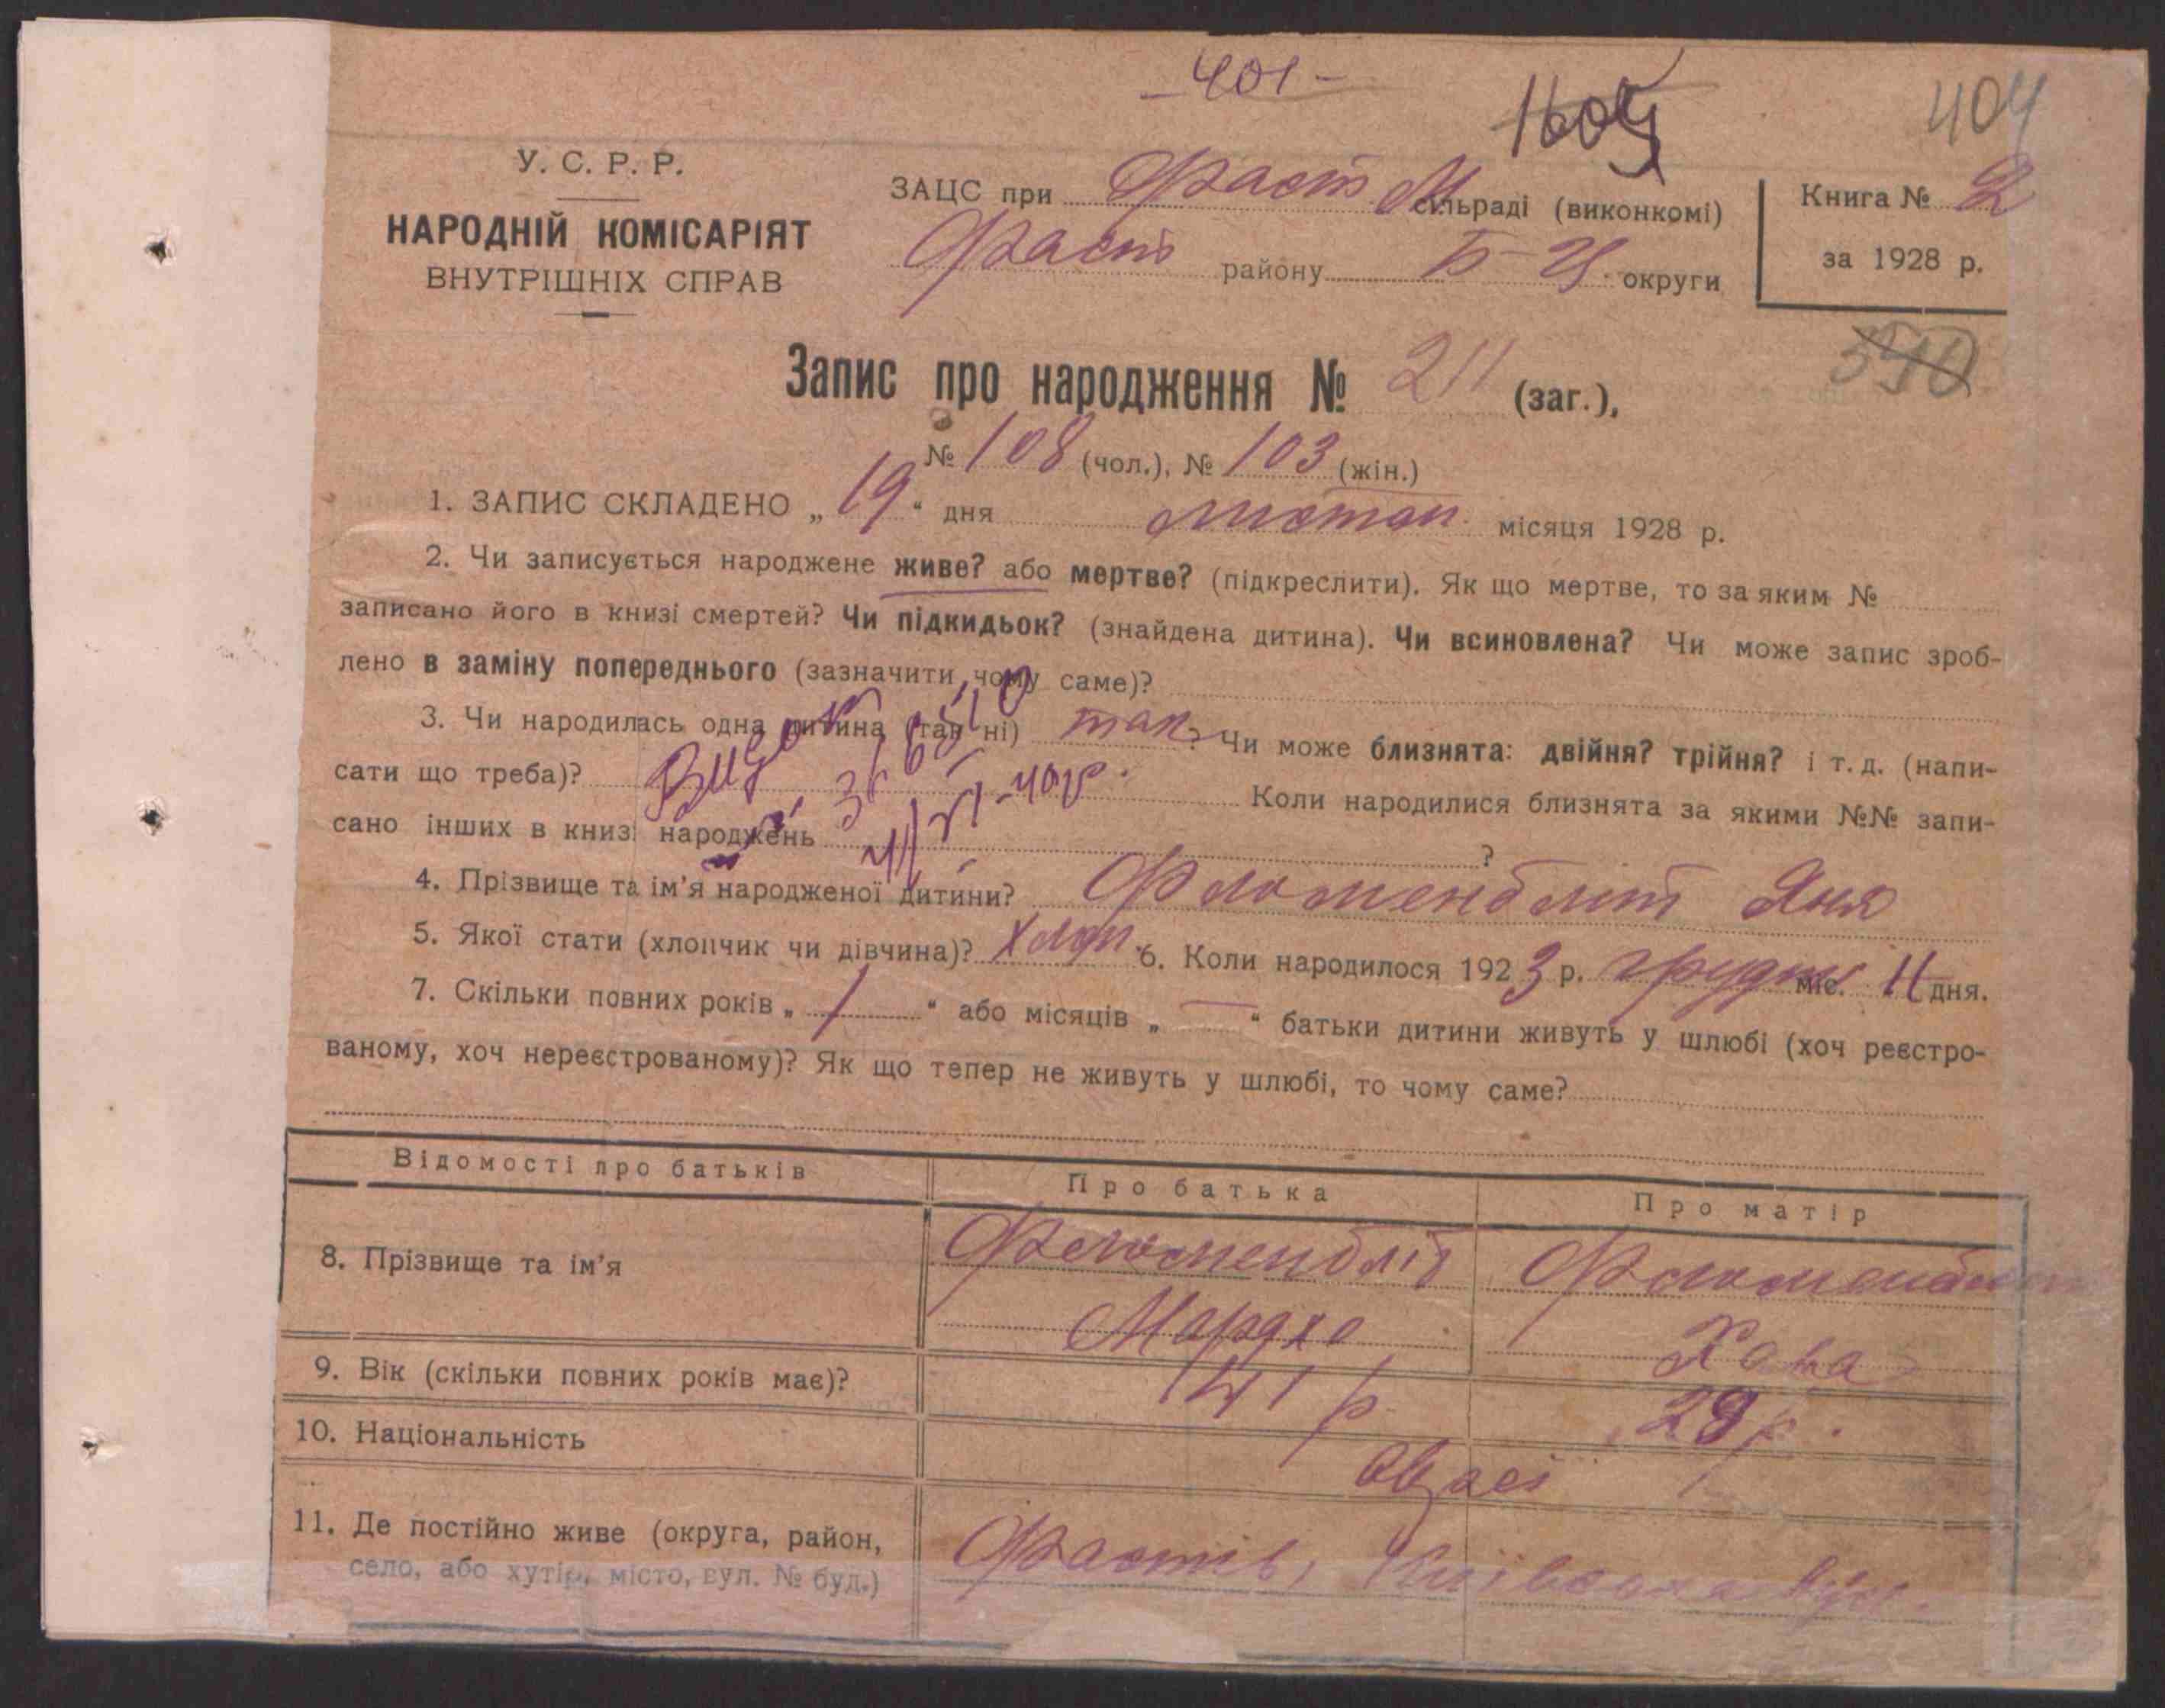 -401-
404
У. С. Р. Р.
НАРОДНІЙ КОМІСАРІЯТ
ВНУТРІШНІХ СПРАВ
ЗАЦС при Фаст. М сільраді (виконкомі)
Фаст району Б-Ц. округи
Книга № 2
за 1928 р.
390
Запис про народження № 211 (заг.),
№ 108 (чол.), № 103 (жін.)
1. ЗАПИС СКЛАДЕНО „19“ дня листоп. місяця 1928 р.
2. Чи записується народжене живе? або мертве? (підкреслити). Як що мертве, то за яким №
записано його в книзі смертей? Чи підкидьок? (знайдена дитина). Чи всиновлена? Чи може запис зроб-
лено в заміну попереднього (зазначити, чому саме)?
3. Чи народилась одна дитина (так ні) так? Чи може близнята: двійня? трійня? і т. д. (напи-
сати що треба)? Коли народилися близнята за якими №№ запи-
сано інших в книзі народжень ?
4. Прізвище та ім’я народженої дитини? Фломенбліт Яня
5. Якої стати (хлопчик чи дівчина)? Хлоп. 6. Коли народилося 1923 р. грудня міс. 11 дня.
7. Скільки повних років „ / “ або місяців „ — “ батьки дитини живуть у шлюбі (хоч реєстро-
ваному, хоч нереєстрованому)? Як що тепер не живуть у шлюбі, то чому саме?
Відомості про батьків Про батька Про матір
8. Прізвище та ім’я Фломенбліт Фломенбліт
Мордхо Хава
9. Вік (скільки повних років має)? 41 р 29 р.
10. Національність євреї
11. Де постійно живе (округа, район, Фастів, Київська вул.
село, або хутір, місто, вул. № буд.)